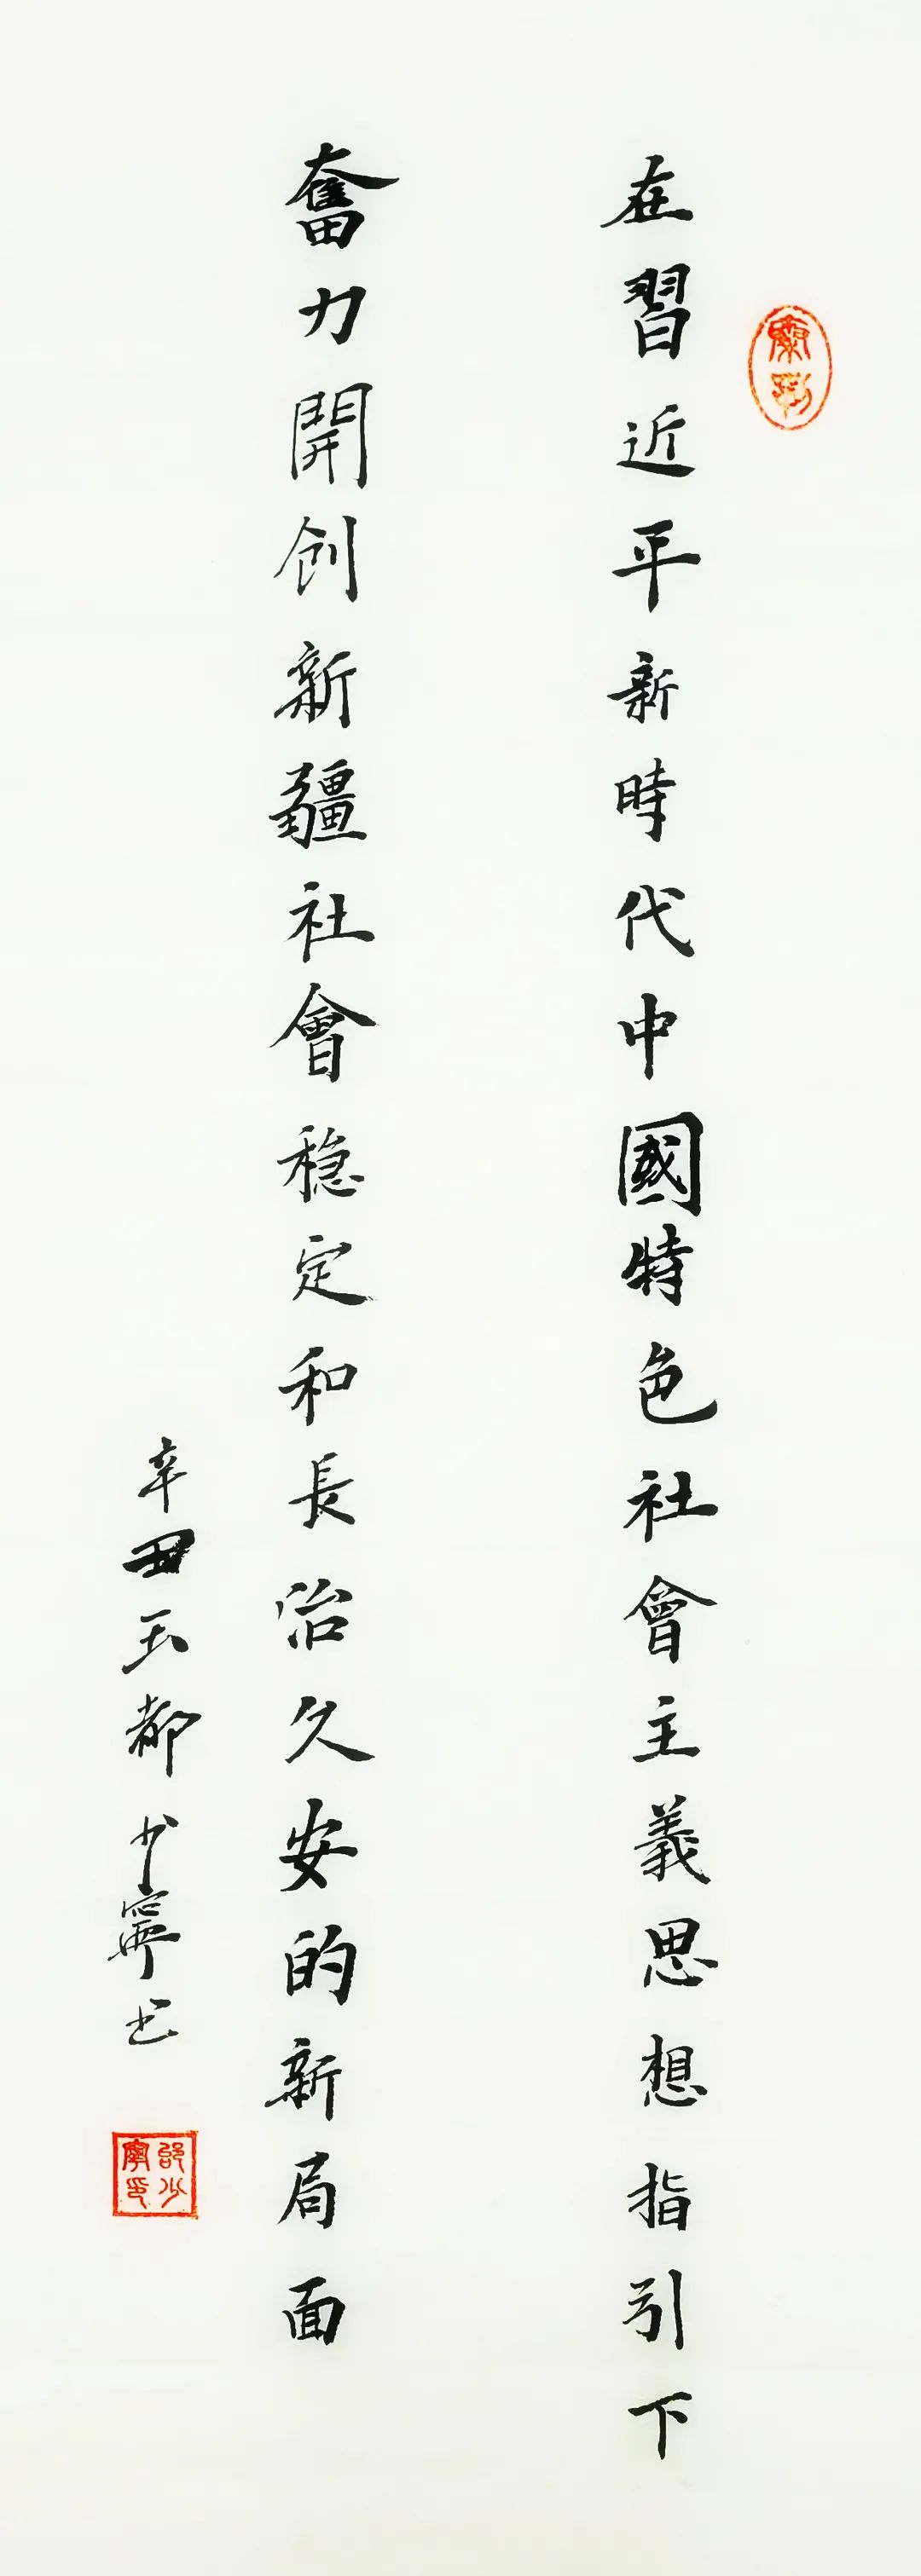 在習近平新時代中國特色社會主義思想指引下
奮力開創新疆社會穏定和長治久安的新局面
辛丑玉都少寧书
邵少寧印